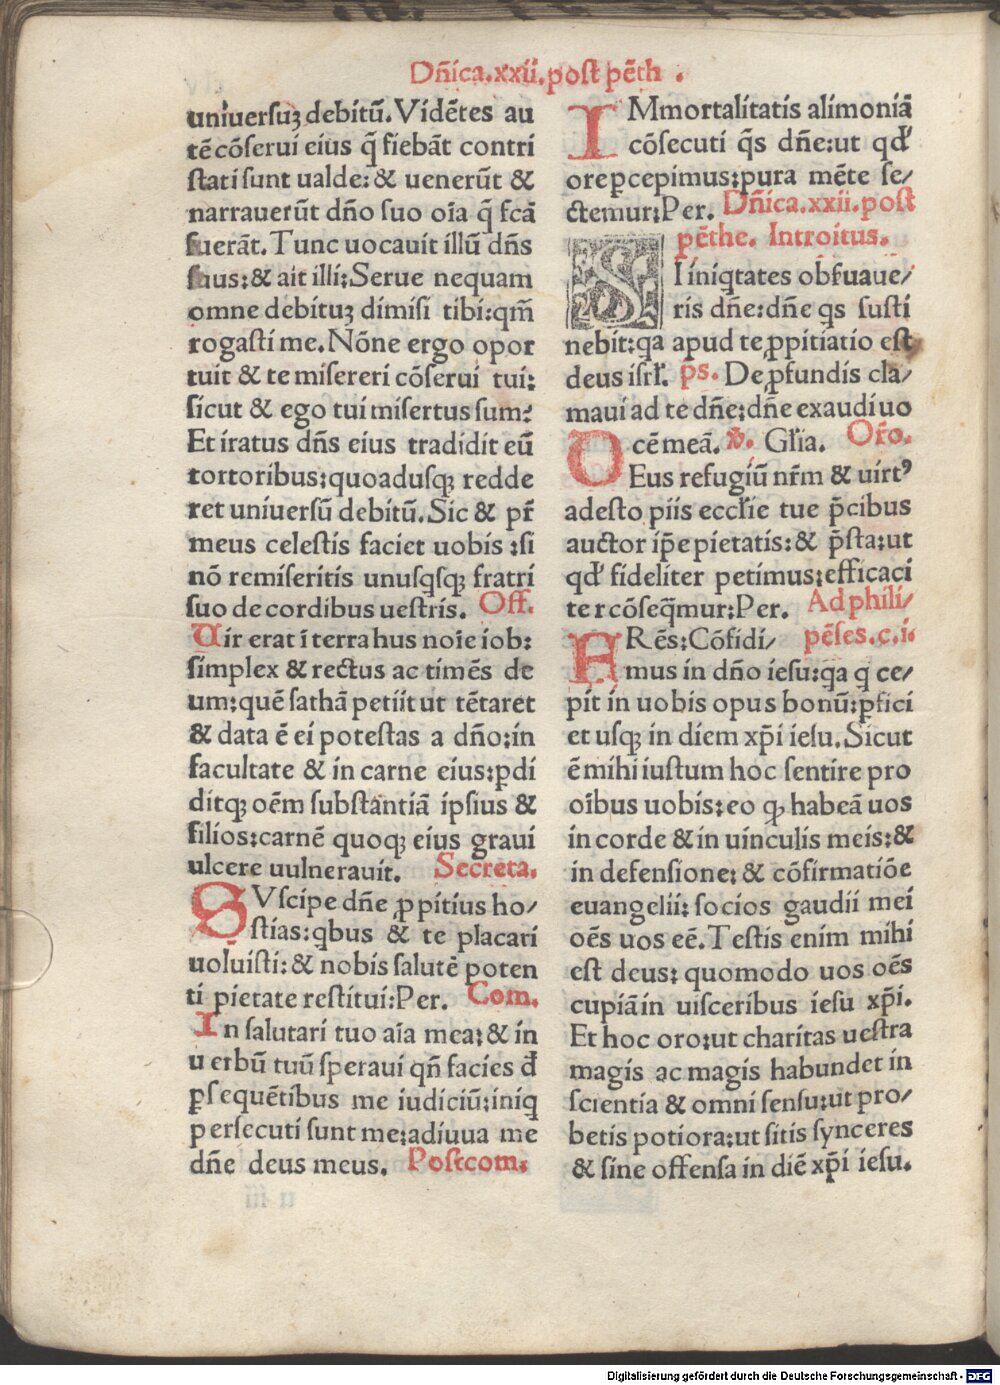 Dñica.xxii.post pēth .
uniuersuʒ debitū. Vidētes au
tē cōserui eius q̄ fiebāt contri
stati sunt ualde: & uenerūt &
narrauerūt dño suo oīa q̄ fcā
fuerāt. Tunc uocauit illū dñs
suus: & ait illi: Serue nequam
omne debituʒ dimisi tibi: qm̄
rogasti me. Nōne ergo opor
tuit & te misereri cōserui tui:
sicut & ego tui misertus sum?
Et iratus dñs eius tradidit eū
tortoribus: quoadusqꝫ redde
ret uniuersū debitū. Sic & pr̄
meus celestis faciet uobis : si
nō remiseritis unusqsqꝫ fratri
suo de cordibus uestris. Off.
Uir erat ī terra hus noīe iob:
simplex & rectus ac timēs de
um: quē sathā petiit ut tētaret
& data ē ei potestas a dño: in
facultate & in carne eius: pdi
ditqꝫ oēm substantiā ipsius &
filios: carnē quoqꝫ eius graui
ulcere uulnerauit. Secreta.
SVscipe dñe ꝓpitius ho/
stias: qbus & te placari
uoluisti: & nobis salutē poten
ti pietate restitui: Per. Com.
In salutari tuo aīa mea: & in
uerbū tuū speraui qñ facies đ
ꝑsequētibus me iudiciū: iniq
persecuti sunt me: adiuua me
dñe deus meus. Postcom.
IMmortalitatis alimoniā
cōsecuti q̄s dñe: ut qđ
ore ꝑcepimus: pura mēte se/
ctemur: Per. Dñica.xxii.post
pēthe. Introitus.
SI iniqtates obsuaue/
ris dñe: dñe qs susti
nebit: qa apud te ꝓpitiatio est
deus isrł. p̄s. De ꝓfundis cla/
maui ad te dñe: dñe exaudi uo
cē meā. ꝟ. Głia. Oro.
DEus refugiū nr̄m & uirtꝰ
adesto piis eccłie tue p̄cibus
auctor ip̄e pietatis: & p̄sta: ut
qđ fideliter petimus: efficaci
ter cōseq̄mur: Per. Ad phili/
pēses. c. i.
FRēs: Cōfidi/
mus in dño iesu: qa q ce/
pit in uobis opus bonū: ꝑfici
et usqꝫ in diem xp̄i iesu. Sicut
ē mihi iustum hoc sentire pro
oībus uobis: eo ꝙ habeā uos
in corde & in uinculis meis: &
in defensione: & cōfirmatiōe
euangelii: socios gaudii mei
oēs uos eē. Testis enim mihi
est deus: quomodo uos oēs
cupiā in uisceribus iesu xp̄i.
Et hoc oro: ut charitas uestra
magis ac magis habundet in
scientia & omni sensu: ut pro/
betis potiora: ut sitis synceres
& sine offensa in diē xp̄i iesu.
Digitalisierung gefördert durch die Deutsche Forschungsgemeinschaft - DFG